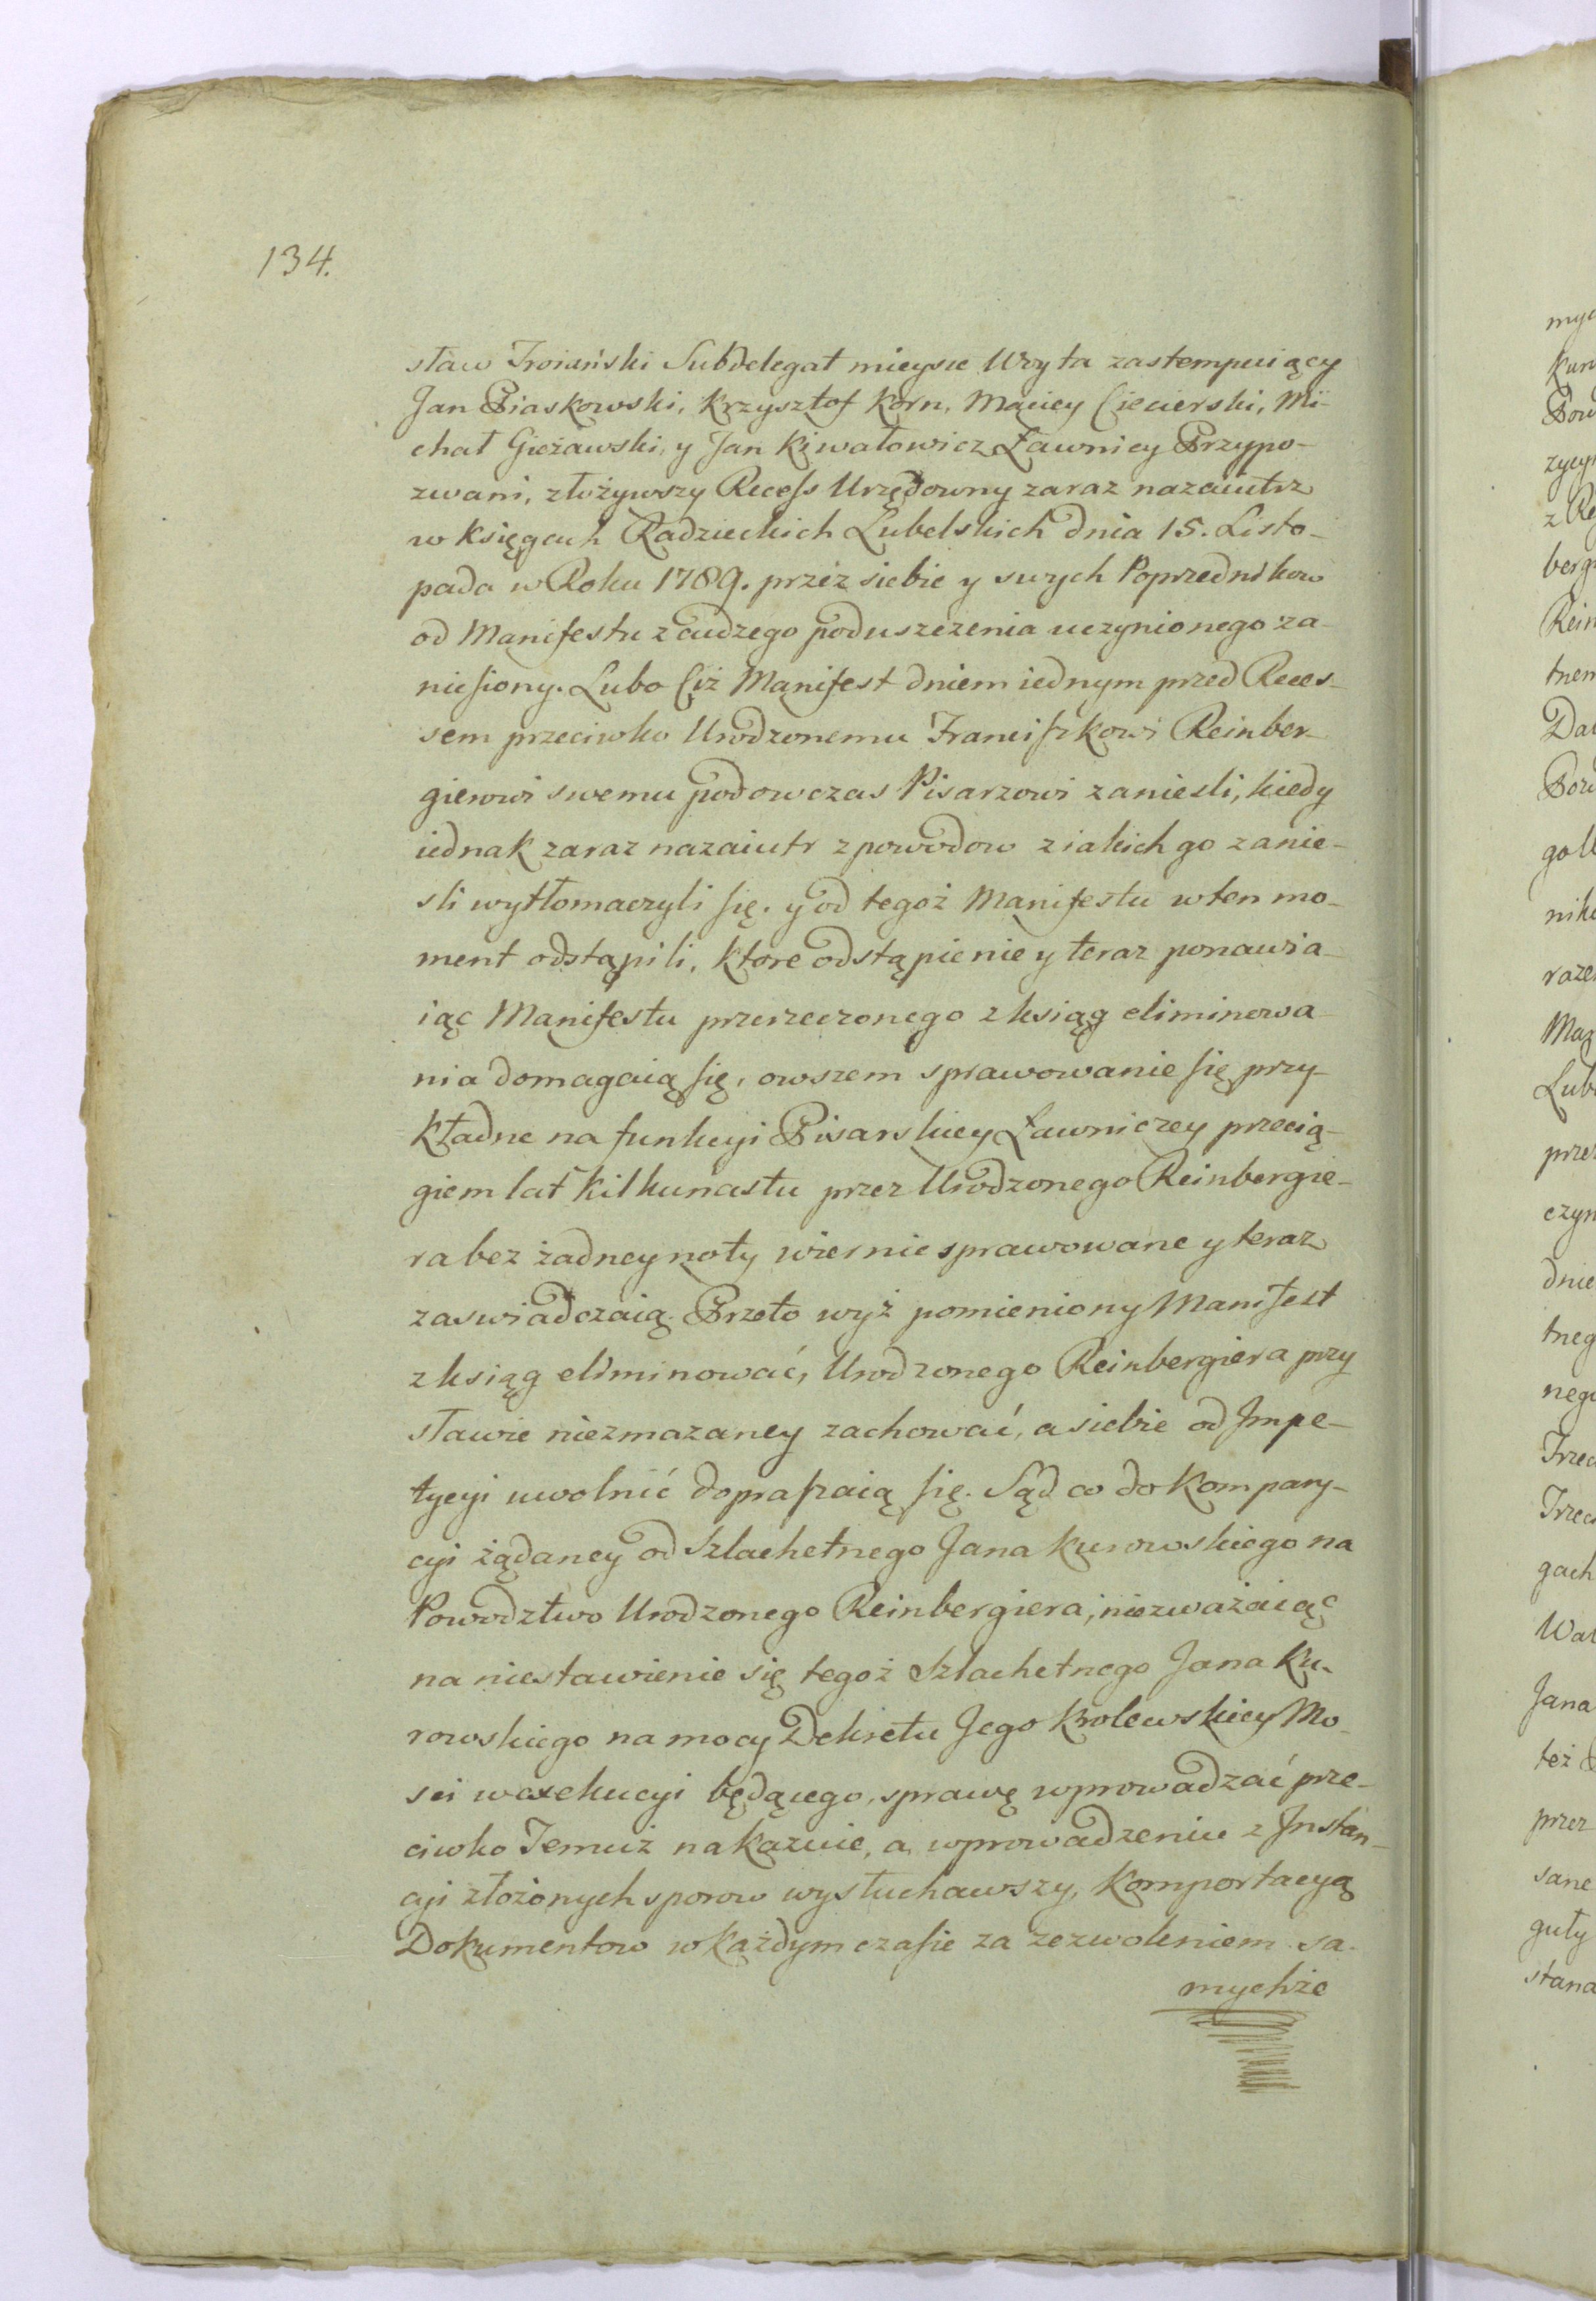 134.
sław Troiański Subdelegat mieysce Woyta zastempuiący
Jan Piaskowski, Krzysztof Korn, Maciey Ciecierski, Mi-
chał Gieżawski, y Jan Kiwałowicz Ławnicy Przypo-
zwani, złożywszy Recess Urzędowny zaraz nazaiutrz
w Księgach Radzieckich Lubelskich dnia 15. Listo-
pada w Roku 1789. przez siebie y swych Poprzednikow
od Manifestu z cudzego poduszczenia uczynionego za-
niesiony. Lubo Ciż Manifest dniem iednym przed Reces-
sem przeciwko Urodzonemu Franciszkowi Reinber-
gierowi swemu podowczas Pisarzowi zaniesli, kiedy
iednak zaraz nazaiutr z powodow z iakich go zanie-
sli wytłomaczyli się. y od tegoż Manifestu w ten mo-
ment odstąpili, ktore odstąpienie y teraz ponawia-
iąc Manifestu przerzeczonego z ksiąg eliminowa-
nia domagaią się, owszem sprawowanie się przy-
kładne na funkcyi Pisarskiey Ławniczey przecią-
giem lat kilkunastu przez Urodzonego Reinbergie-
ra bez żadney noty wiernie sprawowane y teraz
zaswiadczaią. Przeto wyż pomieniony Manifest
z ksiąg eliminować, Urodzonego Reinbergiera przy
sławie niezmazaney zachować, a siebie od Impe-
tycyi uwolnić dopraszaią się. Sąd co do Kompary-
cyi żądaney od Szlachetnego Jana Kurowskiego na
Powodztwo Urodzonego Reinbergiera, niezważaiąc
na niestawienie się tegoż Szlachetnego Jana Ku-
rowskiego na mocy Dekretu Jego Krolewskiey Mo-
sci w exekucyi będącego, sprawę wprowadzać prze-
ciwko Temuż nakazuie, a wprowadzeniu z Instan-
cyi złożonych sporow wysłuchawszy, Komportacyą
Dokumentow w każdym czasie za zezwoleniem sa-
mychże